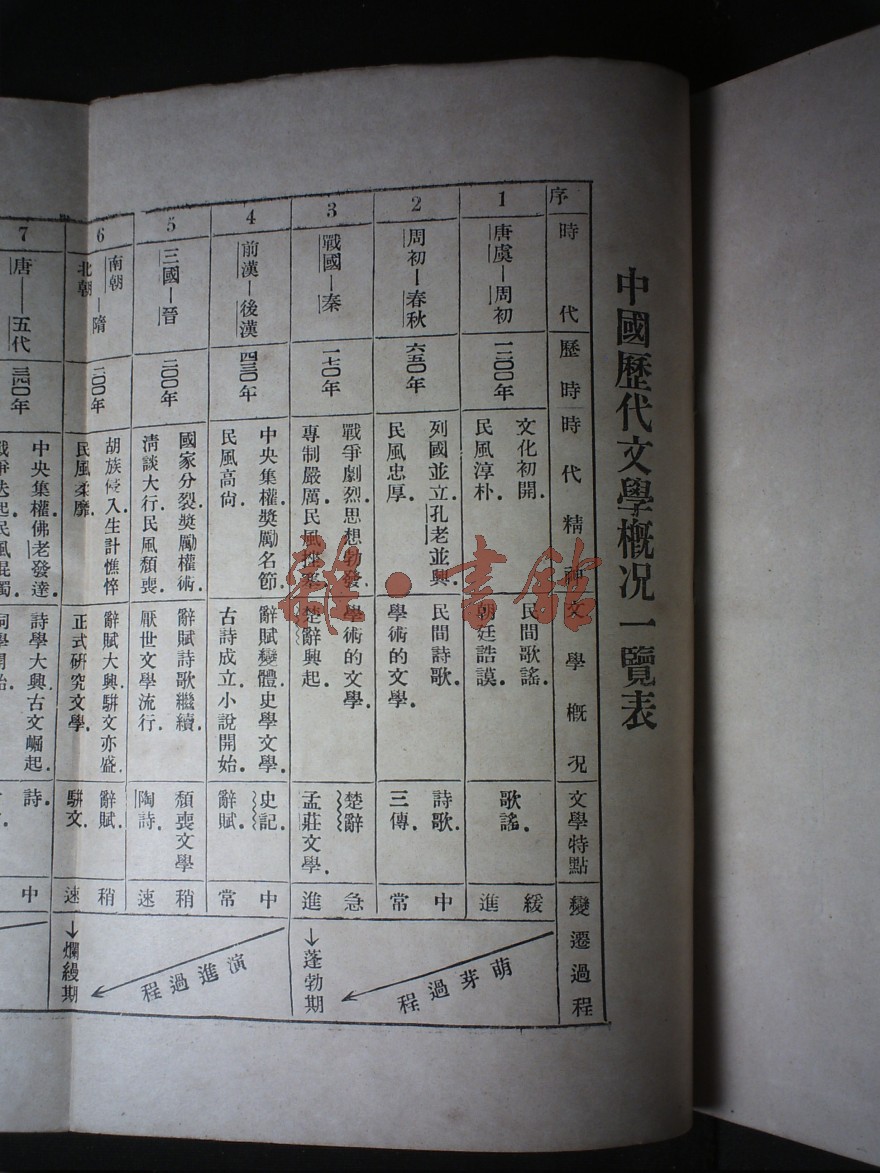 中國歷代文學概况一覽表
序
時代
歷時
時代精神
文學概况
文學特點
變遷過程
1
唐虞—周初
一二〇〇年
文化初開．
民風淳朴．
民間歌謠．
朝廷誥謨．
歌謠．
緩進
2
周初—春秋
六五〇年
列國並立．孔老並興
民風忠厚．
民間詩歌．
學術的文學．
詩歌．
三傳．
中常
萌芽過程
3
戰國—秦
一七〇年
戰爭劇烈．思想勃發．
專制嚴厲．民風
學術的文學
楚辭興起．
楚辭
孟莊文學．
急進
→蓬勃期
4
前漢—後漢
四三〇年
中央集權獎勵名節．
民風高尙
辭賦變體．史學文學．
古詩成立．小說開始．
史記．
辭賦．
中常
5
三國—晉
二〇〇年
國家分裂．獎勵權術．
淸談大行．民風頹喪．
辭賦詩歌繼續．
厭世文學流行．
頹喪文學
陶詩．
稍速
演進過程
6
南朝
北朝
—隋
二〇〇年
胡族侵入生計憔悴
民風柔靡．
辭賦大興．駢文亦盛．
正式研究文學．
辭賦．
駢文．
稍速
→爛縵期
7
唐——五代
三四〇年
中央集權．佛老發達．
戰爭迭起．民風混濁
詩學大興．古文崛起．
詞學開始．
詩．
中
雜·書館